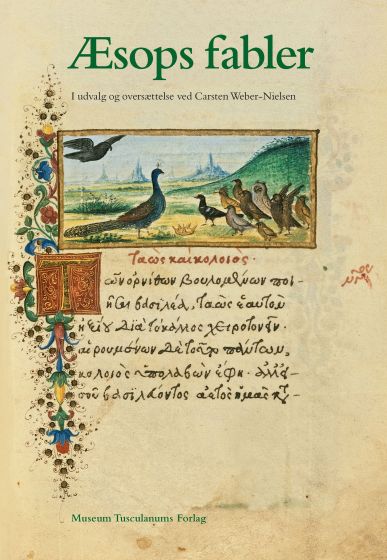 Æsops fabler
I udvalg og oversættelse ved Carsten Weber-Nielsen
ταὼς καὶ κολοιός·
Τῶν ὀρνίθων βουλομένων ποι-
ῆσαι βασιλέα, ταὼς ἑαυτὸν
ἠξίου διὰ τὸ κάλλος χειροτονεῖν·
αἱρουμένων δὲ τοῦτον πάντων,
κολοιὸς ὑπολαβὼν ἔφη· ἀλλ' εἰ
σοῦ βασιλεύοντος ἀετὸς ἡμᾶς
Museum Tusculanums Forlag